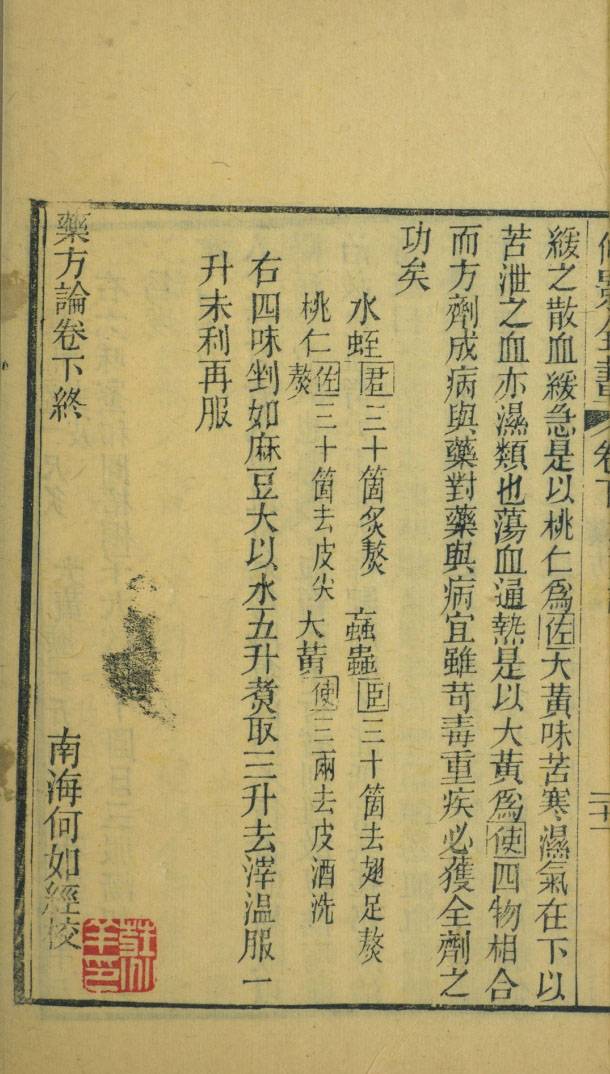 卷下
緩之散血緩急是以桃仁爲佐大黃味苦寒濕氣在下以
苦泄之血亦濕類也蕩血逼熱是以大黃爲使四物相合
而方劑成病與藥對藥與病宜雖苛毒重疾必獲全劑之
功矣
水蛭君三十箇炙熬 䖟蟲臣三十箇去翅足熬
桃仁佐三十箇去皮尖熬 大黃使三兩去皮酒洗
右四味剉如麻豆大以水五升煑取三升去滓温服一
升未利再服
藥方論卷下終
南海何如經校